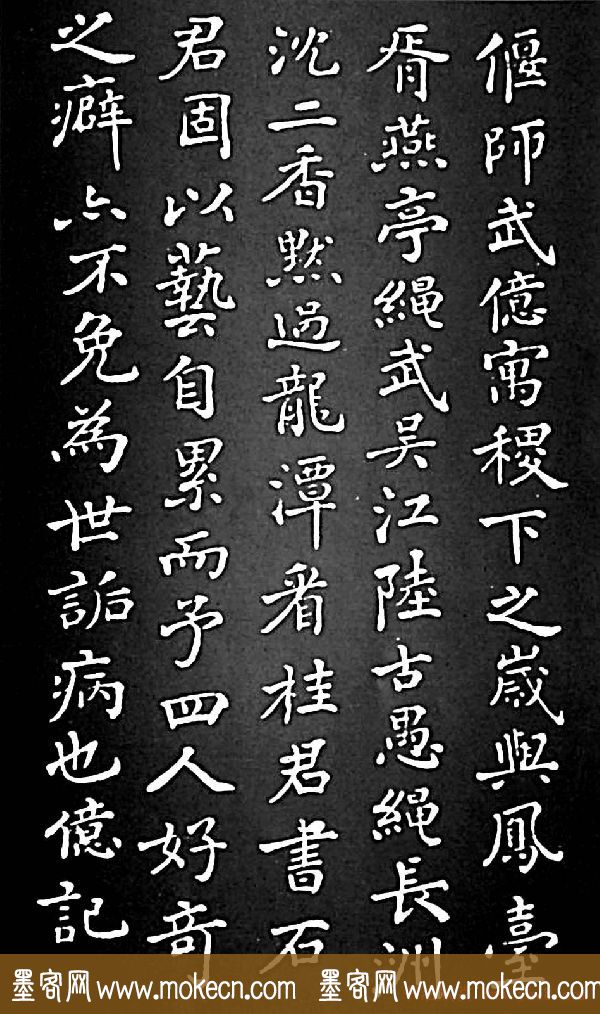 偃師武億寓稷下之歲與鳳臺
胥燕亭繩武吳江陸古愚繩長洲
沈二香默過龍潭看桂君書石
君固以藝自累而予四人好奇
之癖亦不免為世詬病也億記
墨客网 www.mokecn.com 墨客网 www.mokecn.com